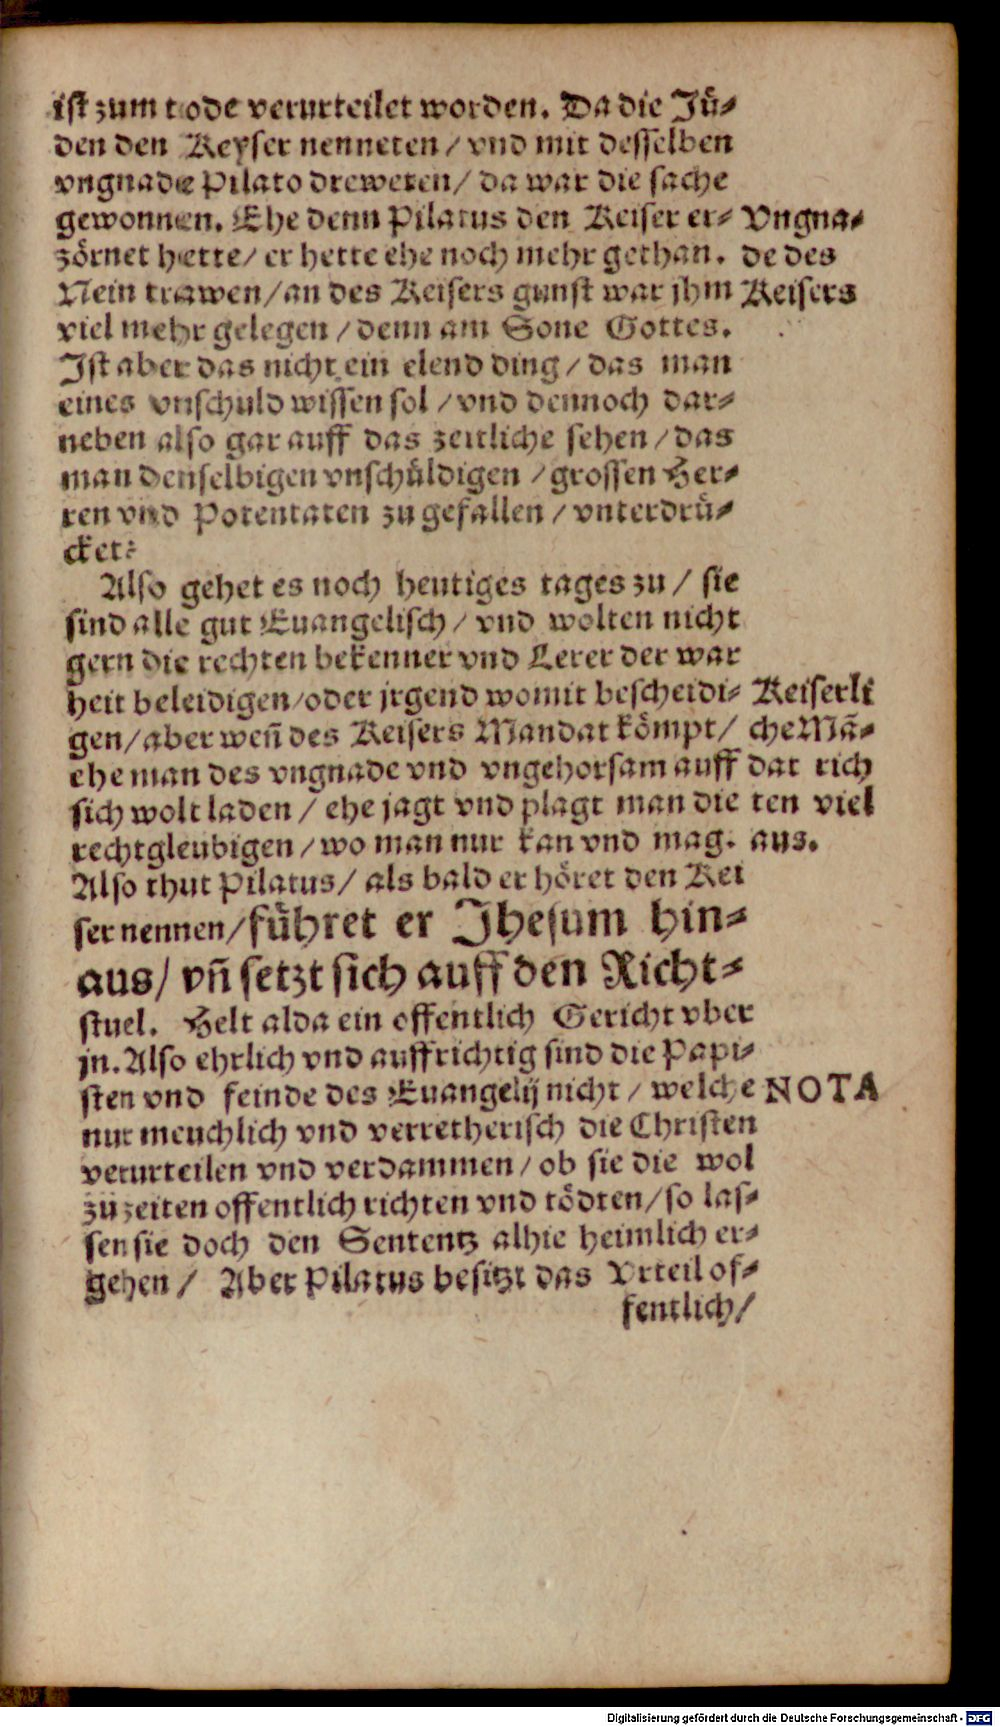 ist zum tode verurteilet worden. Da die Jü-
den den Keyser nenneten / vnd mit desselben
vngnade Pilato dreweten / da war die sache
gewonnen. Ehe denn Pilatus den Keiser er-
zörnet hette / er hette ehe noch mehr gethan.
Nein trawen / an des Keisers gunst war jhm
viel mehr gelegen / denn am Sone Gottes.
Ist aber das nicht ein elend ding / das man
eines vnschuld wissen sol / vnd dennoch dar-
neben also gar auff das zeitliche sehen / das
man denselbigen vnschüldigen / grossen Her-
ren vnd Potentaten zu gefallen / vnterdrü-
cket?
Also gehet es noch heutiges tages zu / sie
sind alle gut Euangelisch / vnd wolten nicht
gern die rechten bekenner vnd Lerer der war
heit beleidigen / oder jrgend womit bescheidi-
gen / aber weñ des Keisers Mandat kömpt /
ehe man des vngnade vnd vngehorsam auff
sich wolt laden / ehe jagt vnd plagt man die
rechtgleubigen / wo man nur kan vnd mag.
Also thut Pilatus / als bald er höret den Kei
ser nennen / führet er Jhesum hin-
aus / vñ setzt sich auff den Richt-
stuel. Helt alda ein offentlich Gericht vber
jn. Also ehrlich vnd auffrichtig sind die Papi-
sten vnd feinde des Euangelij nicht / welche
nur meuchlich vnd verretherisch die Christen
verurteilen vnd verdammen / ob sie die wol
zu zeiten offentlich richten vnd tödten / so las-
sen sie doch den Sententz alhie heimlich er-
gehen / Aber Pilatus besitzt das Vrteil of-
fentlich /
Vngna-
de des
Keisers
Keiserli
che Mã-
dat rich
ten viel
aus.
NOTA
Digitalisierung gefördert durch die Deutsche Forschungsgemeinschaft - DFG